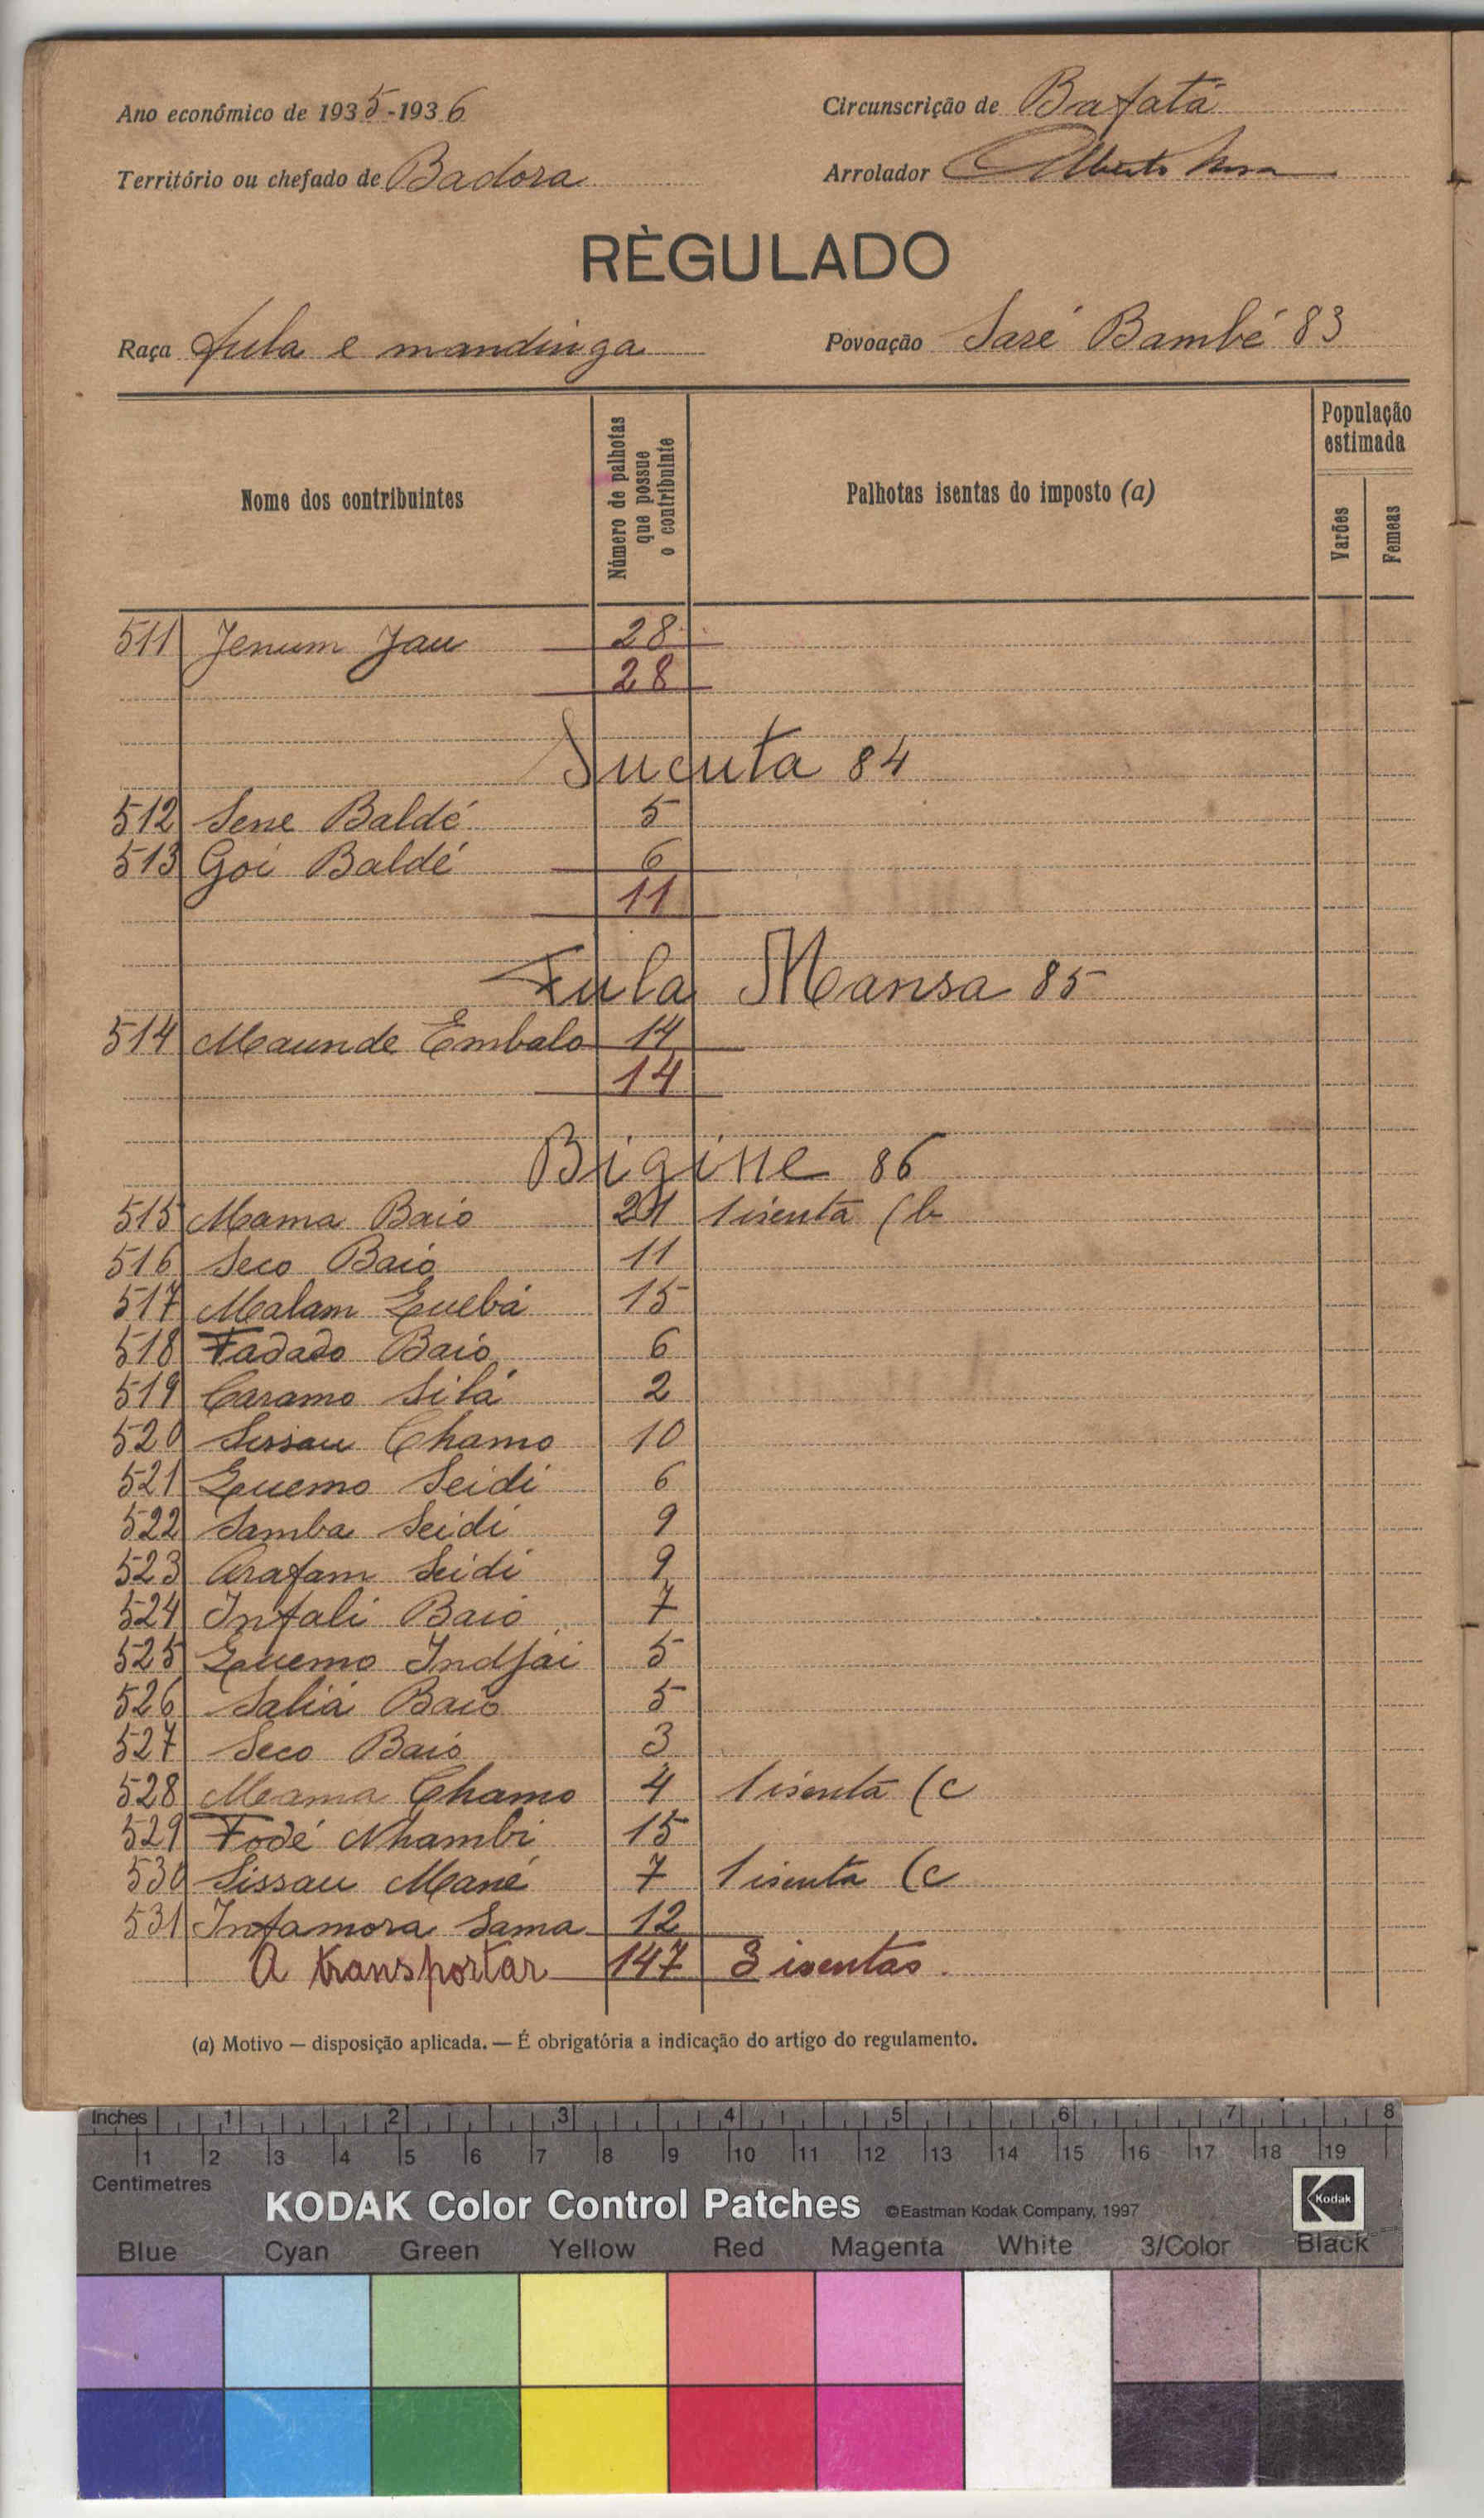 Ano económico de 1935-1936 Circunscrição de Bafatá
Território ou chefado de Badora Arrolador Alberto
RÈGULADO
Raça fula e mandinga Povoação Saré Bambé 83
Nome dos contribuintes Número de palhotas que possue o contribuinte Palhotas isentas do imposto (a) População estimada Varões Femeas
511 Jenum Jau 28
28
Sucuta 84
512 Sene Baldé 5
513 Goi Baldé 6
11
Fula Mansa 85
514 Maunde Embalo 14
14
Bigine 86
515 Mama Baio 21 1 isenta (b
516 Seco Baio 11
517 Malam Quebá 15
518 Fadado Baio 6
519 Caramo Silá 2
520 Sissau Chamo 10
521 Quemo Seidi 6
522 Samba Seidi 9
523 Arafam Seidi 9
524 Infali Baio 7
525 Quemo Indjai 5
526 Saliá Baio 5
527 Seco Baio 3
528 Mama Chamo 4 1 isenta (c
529 Fodé Nhambi 15
530 Sissau Mané 7 1 isenta (c
531 Infamora Sama 12
A transportar 147 3 isentas.
(a) Motivo — disposição aplicada. — É obrigatória a indicação do artigo do regulamento.
Inches 1 2 3 4 5 6 7 8
1 2 3 4 5 6 7 8 9 10 11 12 13 14 15 16 17 18 19
Centimetres
KODAK Color Control Patches ©Eastman Kodak Company, 1997 Kodak
Blue Cyan Green Yellow Red Magenta White 3/Color Black